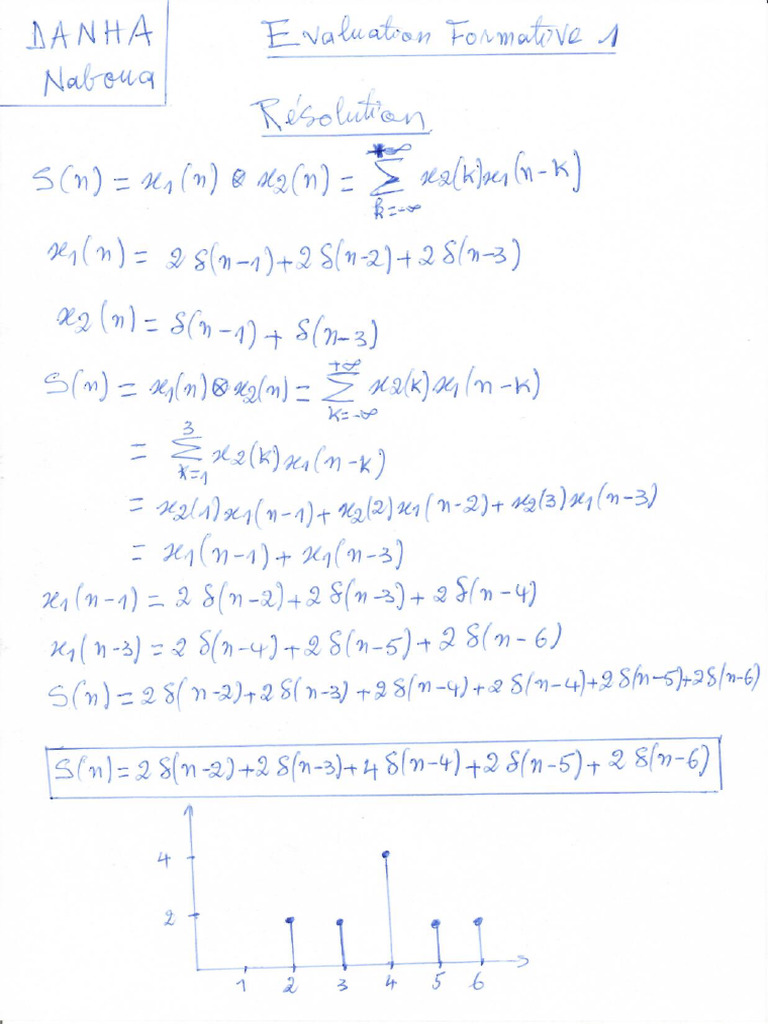 DANHA
Naboua
Evaluation Formative 1
Résolution
S(n) = x1(n) ⊗ x2(n) = +∞ Σ k=-∞ x2(k)x1(n-k)
x1(n) = 2 δ(n-1)+2 δ(n-2)+2 δ(n-3)
x2(n) = δ(n-1) + δ(n-3)
S(n) = x1(n)⊗x2(n) = +∞ Σ k=-∞ x2(k)x1(n-k)
= 3 Σ k=1 x2(k)x1(n-k)
= x2(1)x1(n-1)+x2(2)x1(n-2)+x2(3)x1(n-3)
= x1(n-1)+x1(n-3)
x1(n-1) = 2 δ(n-2)+2 δ(n-3)+2 δ(n-4)
x1(n-3) = 2 δ(n-4)+2 δ(n-5)+2 δ(n-6)
S(n) = 2 δ(n-2)+2 δ(n-3)+2 δ(n-4)+2 δ(n-4)+2 δ(n-5)+2 δ(n-6)
S(n) = 2 δ(n-2)+2 δ(n-3)+4 δ(n-4)+2 δ(n-5)+2 δ(n-6)
4
2
1 2 3 4 5 6